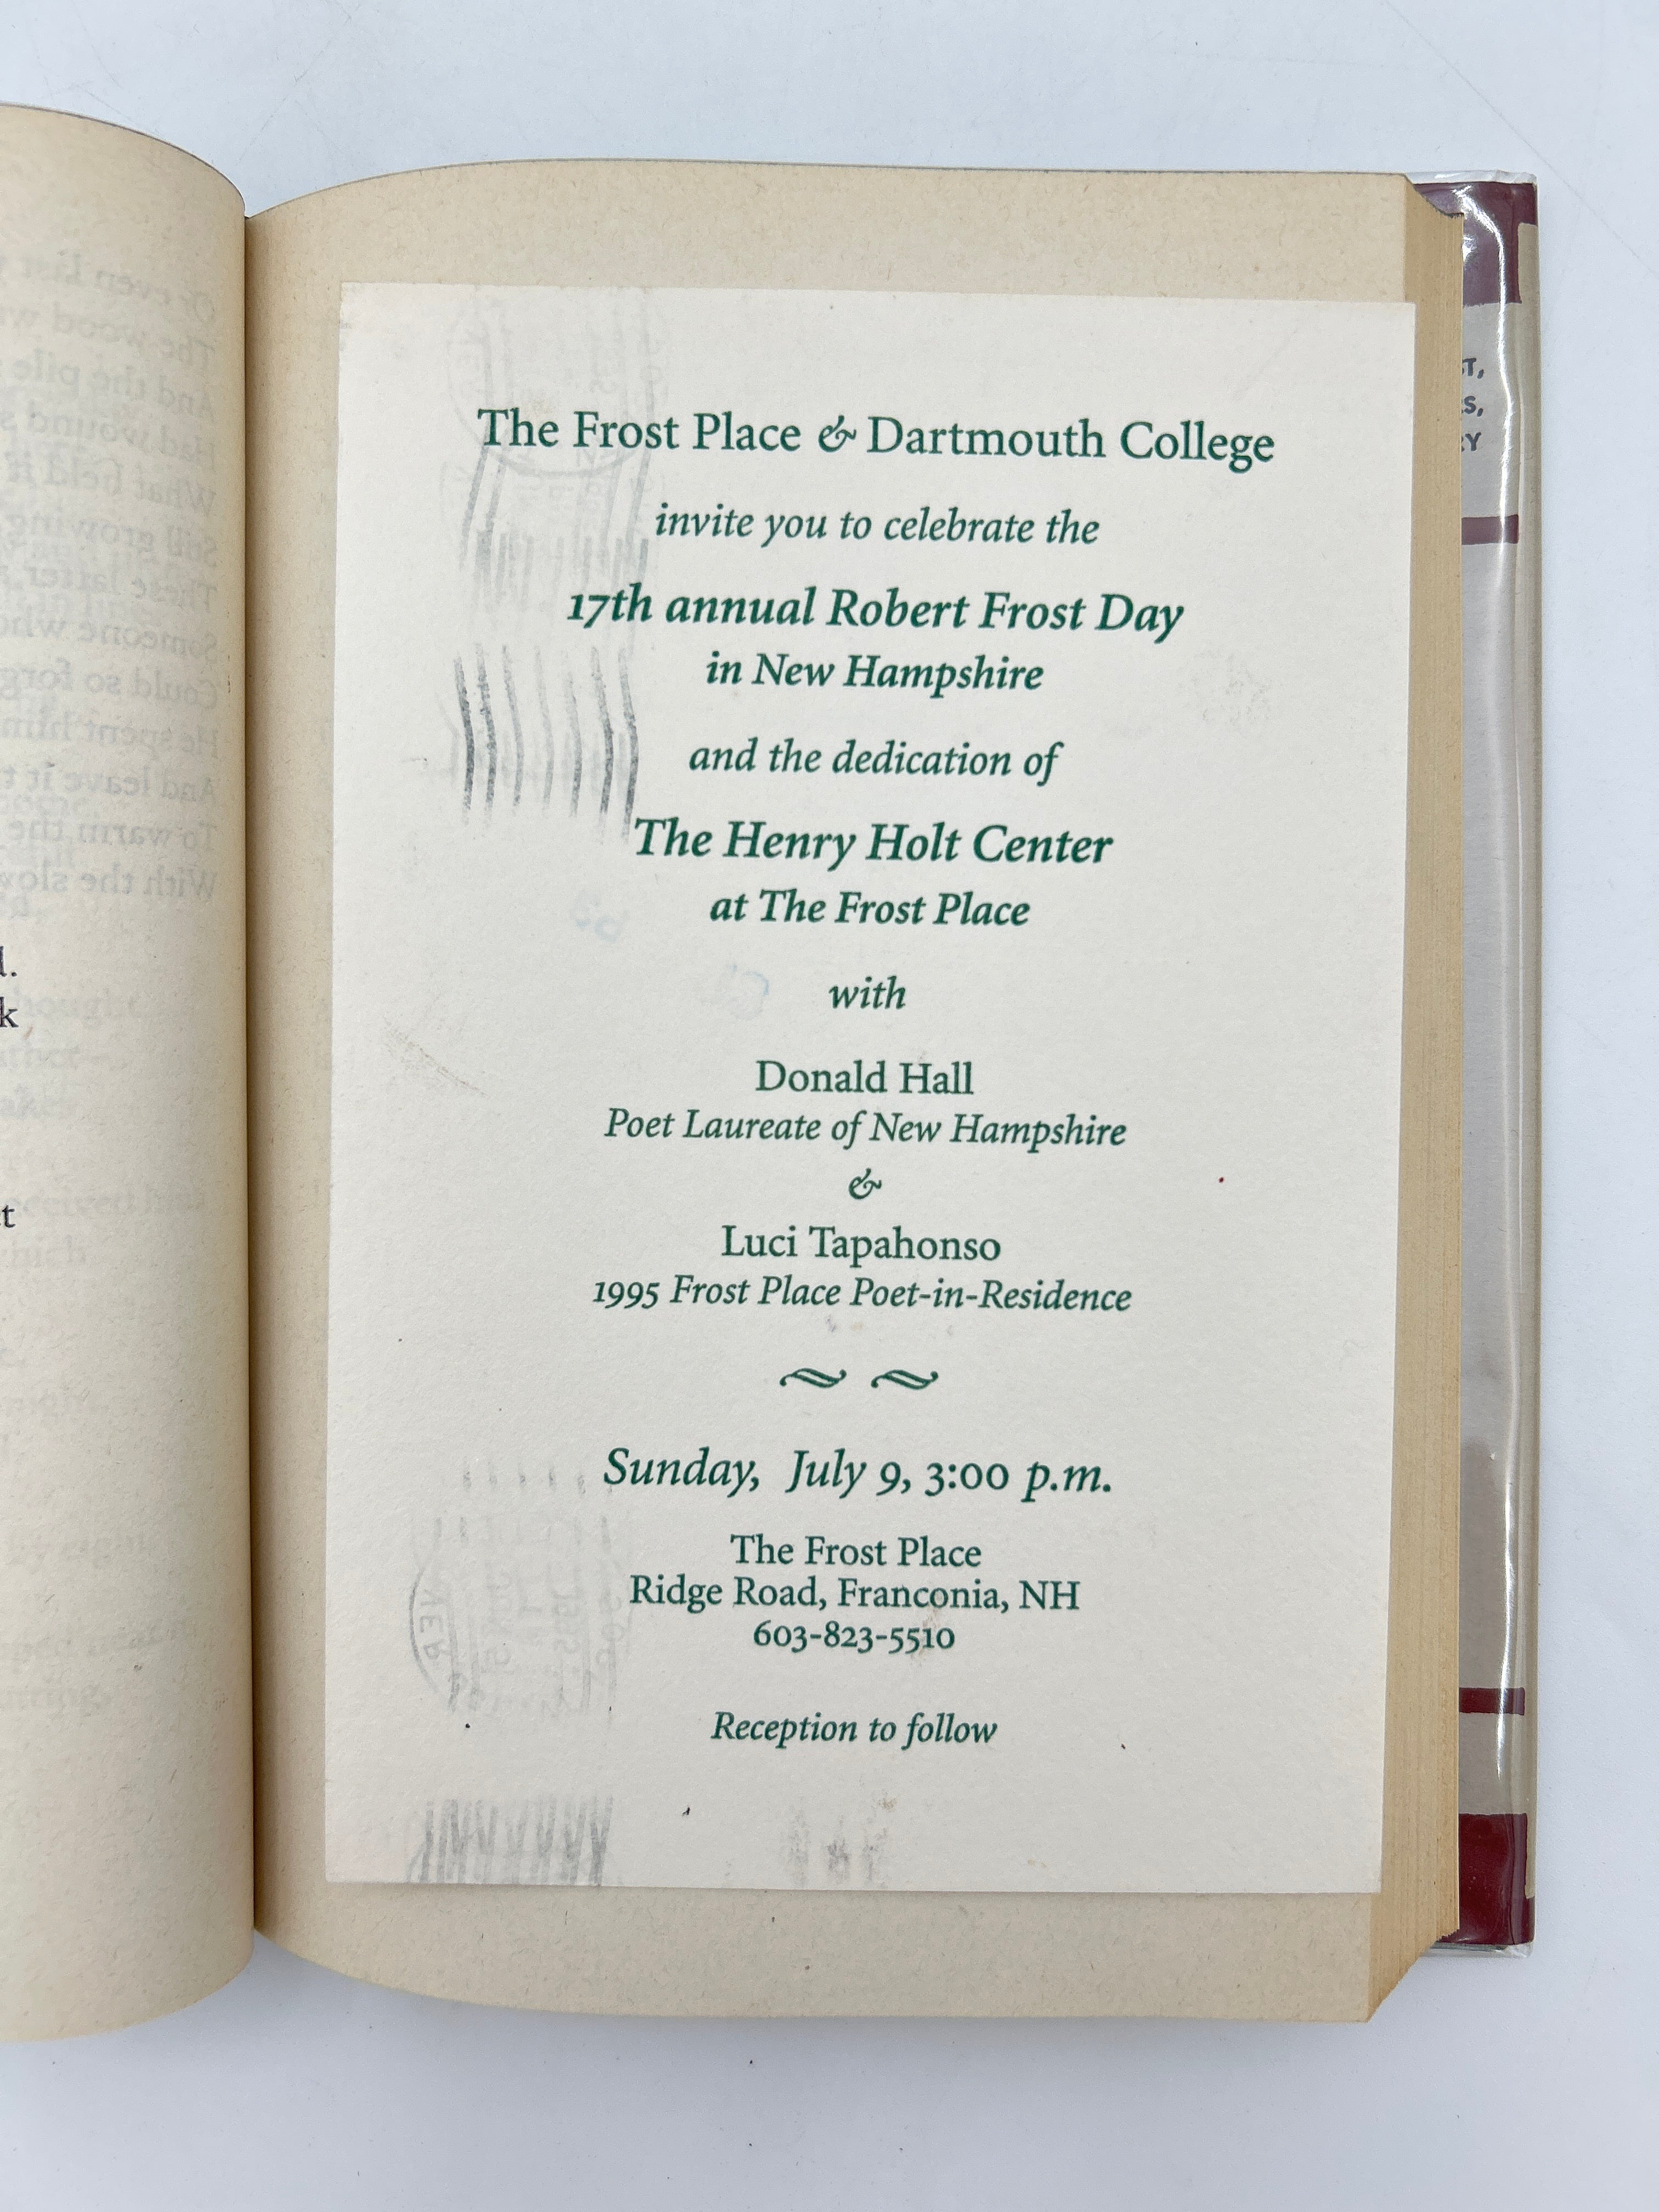 The Frost Place & Dartmouth College
invite you to celebrate the
17th annual Robert Frost Day
in New Hampshire
and the dedication of
The Henry Holt Center
at The Frost Place
with
Donald Hall
Poet Laureate of New Hampshire
&
Luci Tapahonso
1995 Frost Place Poet-in-Residence
Sunday, July 9, 3:00 p.m.
The Frost Place
Ridge Road, Franconia, NH
603-823-5510
Reception to follow